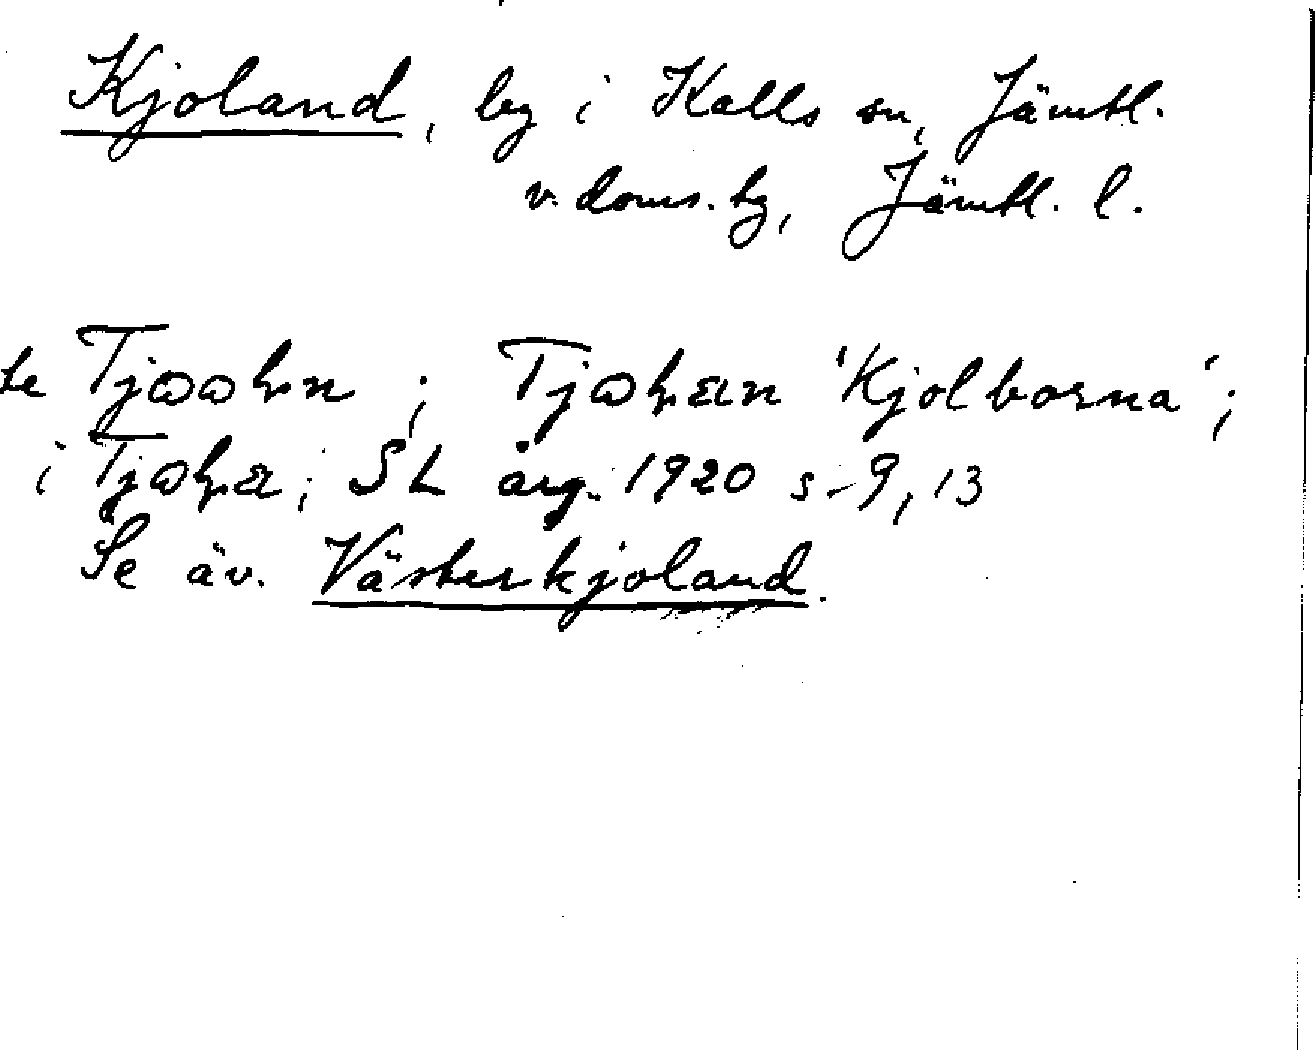 Kjoland, by i Kalls sn, Jämtl.
v. doms. hg, Jämtl. l.
te ; 'Kjolborna';
i ; SL årg. 1920 s. 9, 13
Se äv. Västerkjoland.